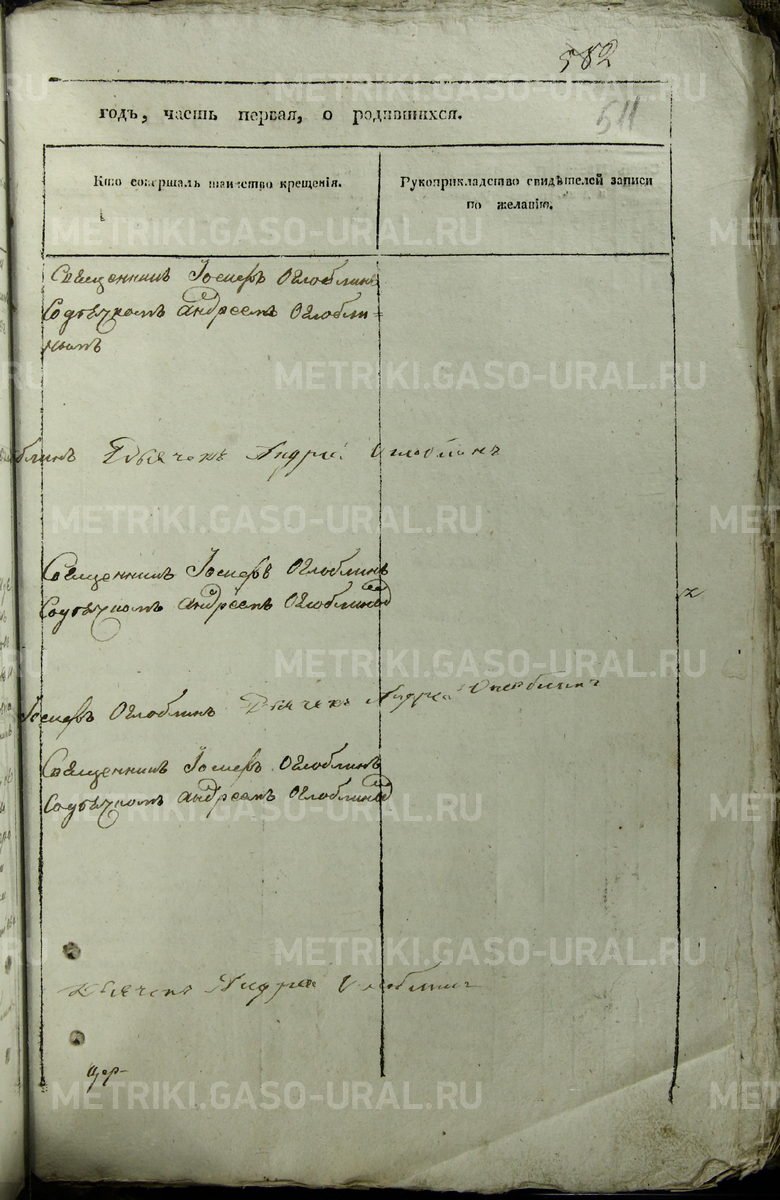 582
511
годъ, часть первая, о родившихся.
Кто совершалъ таинство крещенія.
Рукоприкладство свидѣтелей записи
по желанію.
Священникъ Іосифъ Оглоблинъ
Содьячкомъ андреемъ Оглобли=
нымъ
блинъ Дьячекъ Андрей Оглоблинъ
Священникъ Іосифъ Оглоблинъ
Содьячкомъ андреемъ Оглоблины
Іосифъ Оглоблинъ Дьячекъ Андрей Оглоблинъ
Священникъ Іосифъ Оглоблинъ
Содьячкомъ андреемъ Оглоблины
Дьячекъ Андрей Оглоблинъ
METRIKI.GASO-URAL.RU